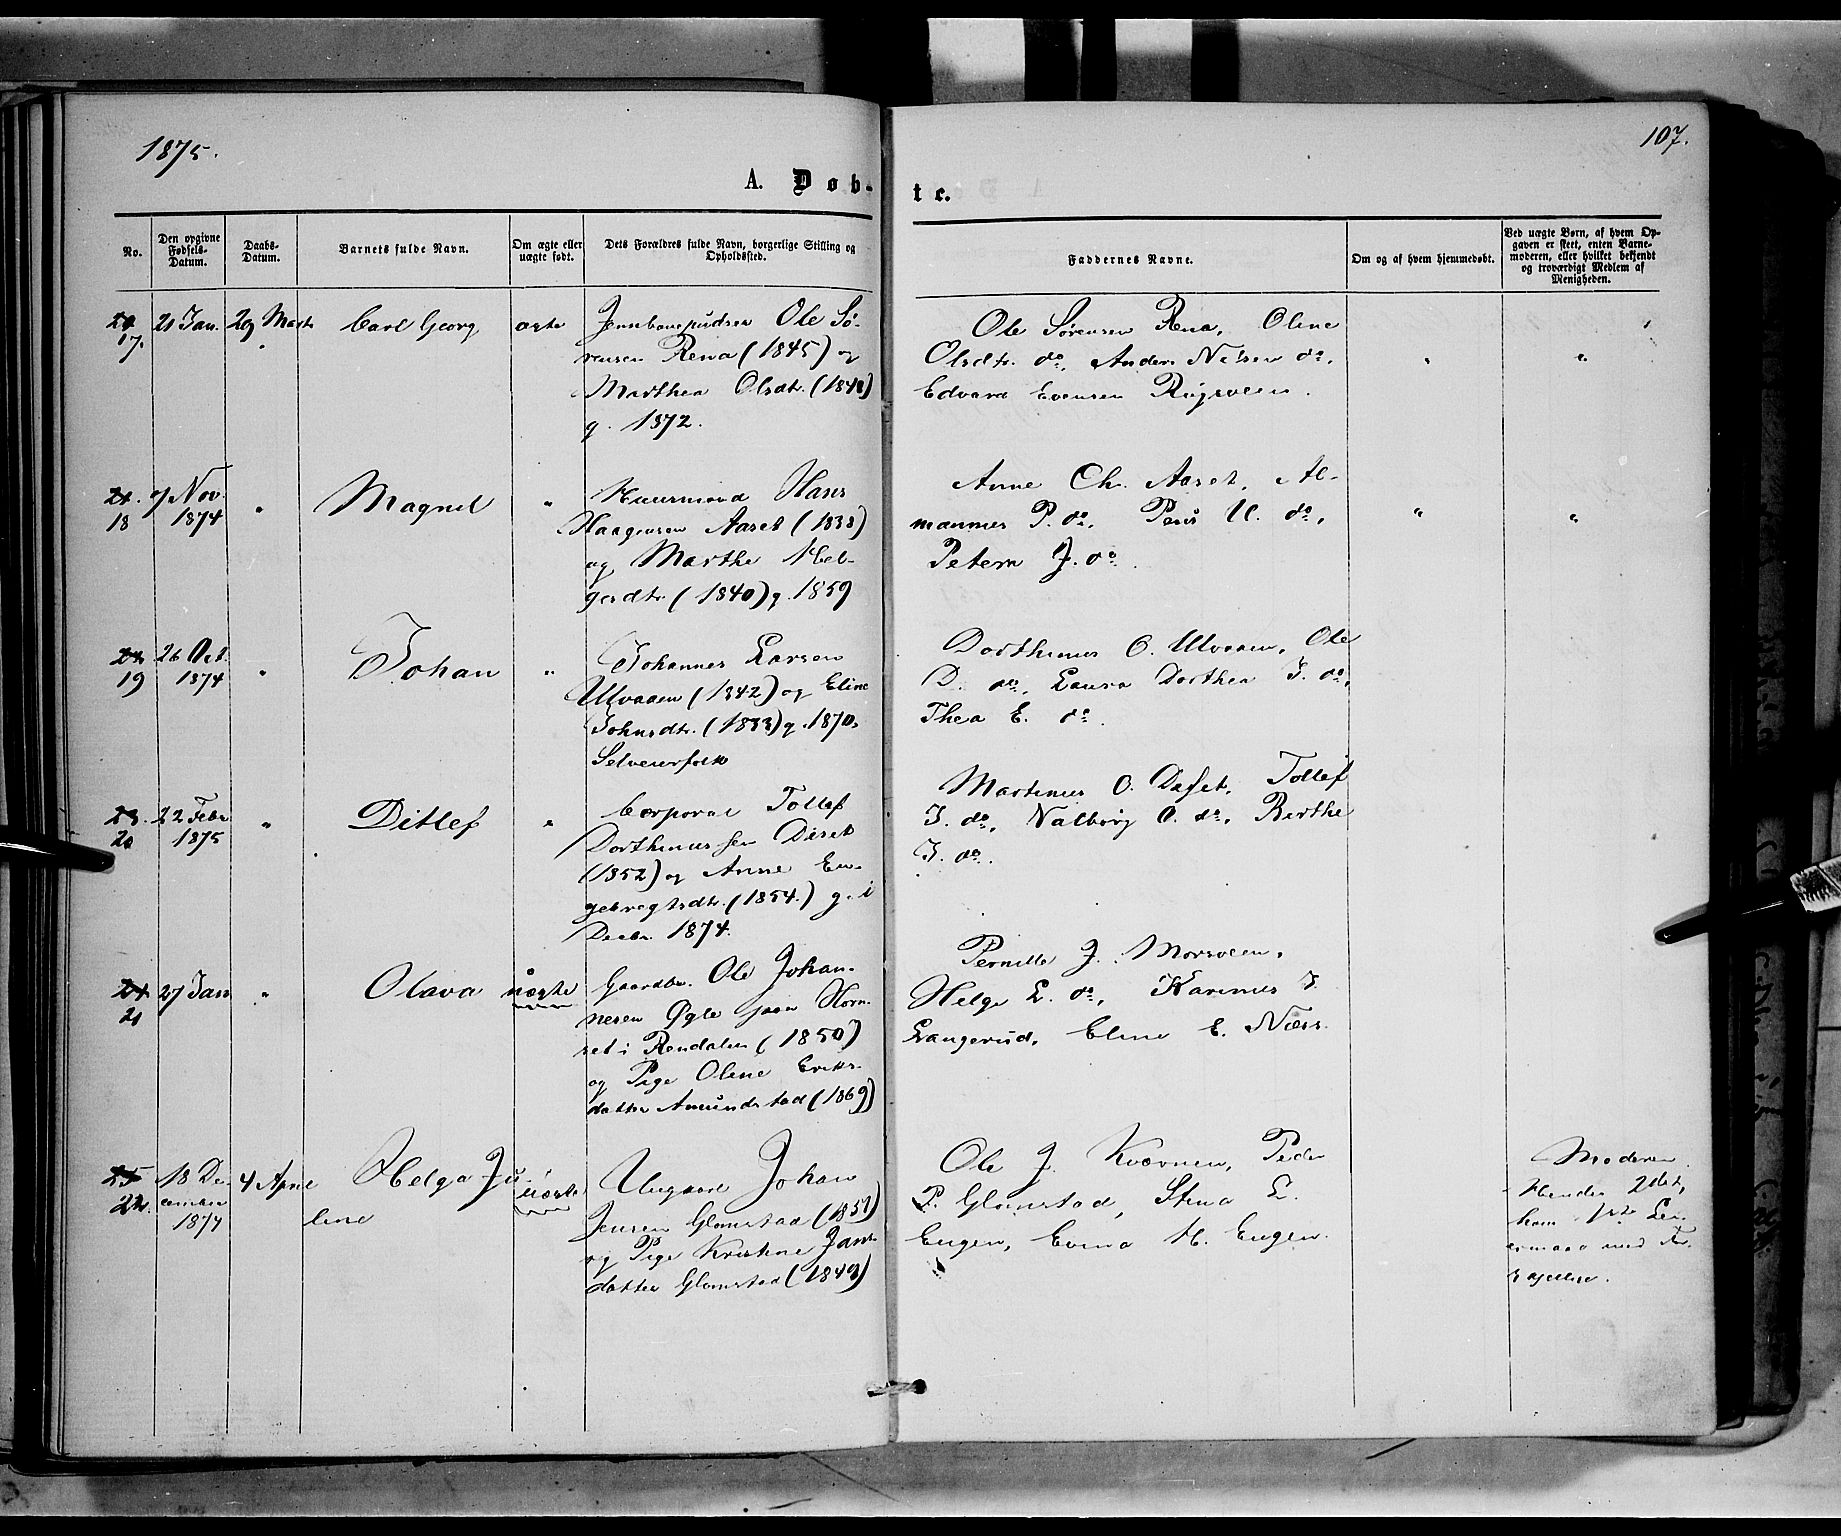 1875.
107.
A. Døb-
te.
No.
Den opgivne Fødsels-Datum.
Daabs-Datum.
Barnets fulde Navn.
Om ægte eller uægte født.
Dets Forældres fulde Navn, borgerlige Stilling og Opholdssted.
Faddernes Navne.
Om og af hvem hjemmedøbt.
Ved uægte Børn, af hvem Op-
gaven er skeet, enten Barne-
moderen, eller hvilket bekjendt
og troværdigt Medlem af
Menigheden.
17.
21 Jan.
29 Marts
Carl Georg
ægte
Jernbanepudser Ole Sø-
rensen Rena (1845) og
Marthea Olsdt. (1848)
g. 1872.
Ole Sørensen Rena, Oline
Olsdt. do, Anders Nilsen do,
Edvard Evensen Rogsveen.
18
7 Nov.
1874
"
Magnil
"
Huusmand Hans
Haagensen Aaset (1838)
og Marthe Hel-
gesdtr (1840) g. 1859
Anne Ch. Aaset, Al-
mannus P. do, Peris U. do,
Petern J. do.
"
"
19
26 Oct.
1874
"
Johan
"
Johannes Larsen
Ulvaaen (1842) og Eline
Johnsdtr. (1833) g. 1870,
Selveierfolk
Dorthenus O. Ulvaaen, Ole
D. do, Laura Dorthea J. do,
Thea E. do.
20
22 Febr
1875
"
Ditlef
"
Corporal Tollef
Dorthinussen Diset
(1852) og Anne En-
gebregtsdtr. (1854.) g. i
Decbr. 1874.
Martinus O. Deset, Tollef
J. do, Valborg O. do, Berthe
J. do.
21
27 Jan
"
Olava
uægte
Gaardbr. Ole Johan-
nesen Øgle paa Horn-
set i Rendalen (1850)
og Pige Olene Eriks-
datter Amundstad (1869)
Pernille J. Morsveen,
Helge L. do, Karinus J.
Langerud, Eline E. Næss.
22.
18 De-
cember
1874
4 April
Helga Ju-
line
uægte
Ungkarl Johan
Jensen Glomstad (1851)
og Pige Kristine Jans-
datter Glomstad (1849)
Ole J. Kværnen, Peder
P. Glomstad, Stina L.
Engen, Evina H. Engen.
Moderen.
Hendes 2det,
hans 1ste Lei-
ermaal med